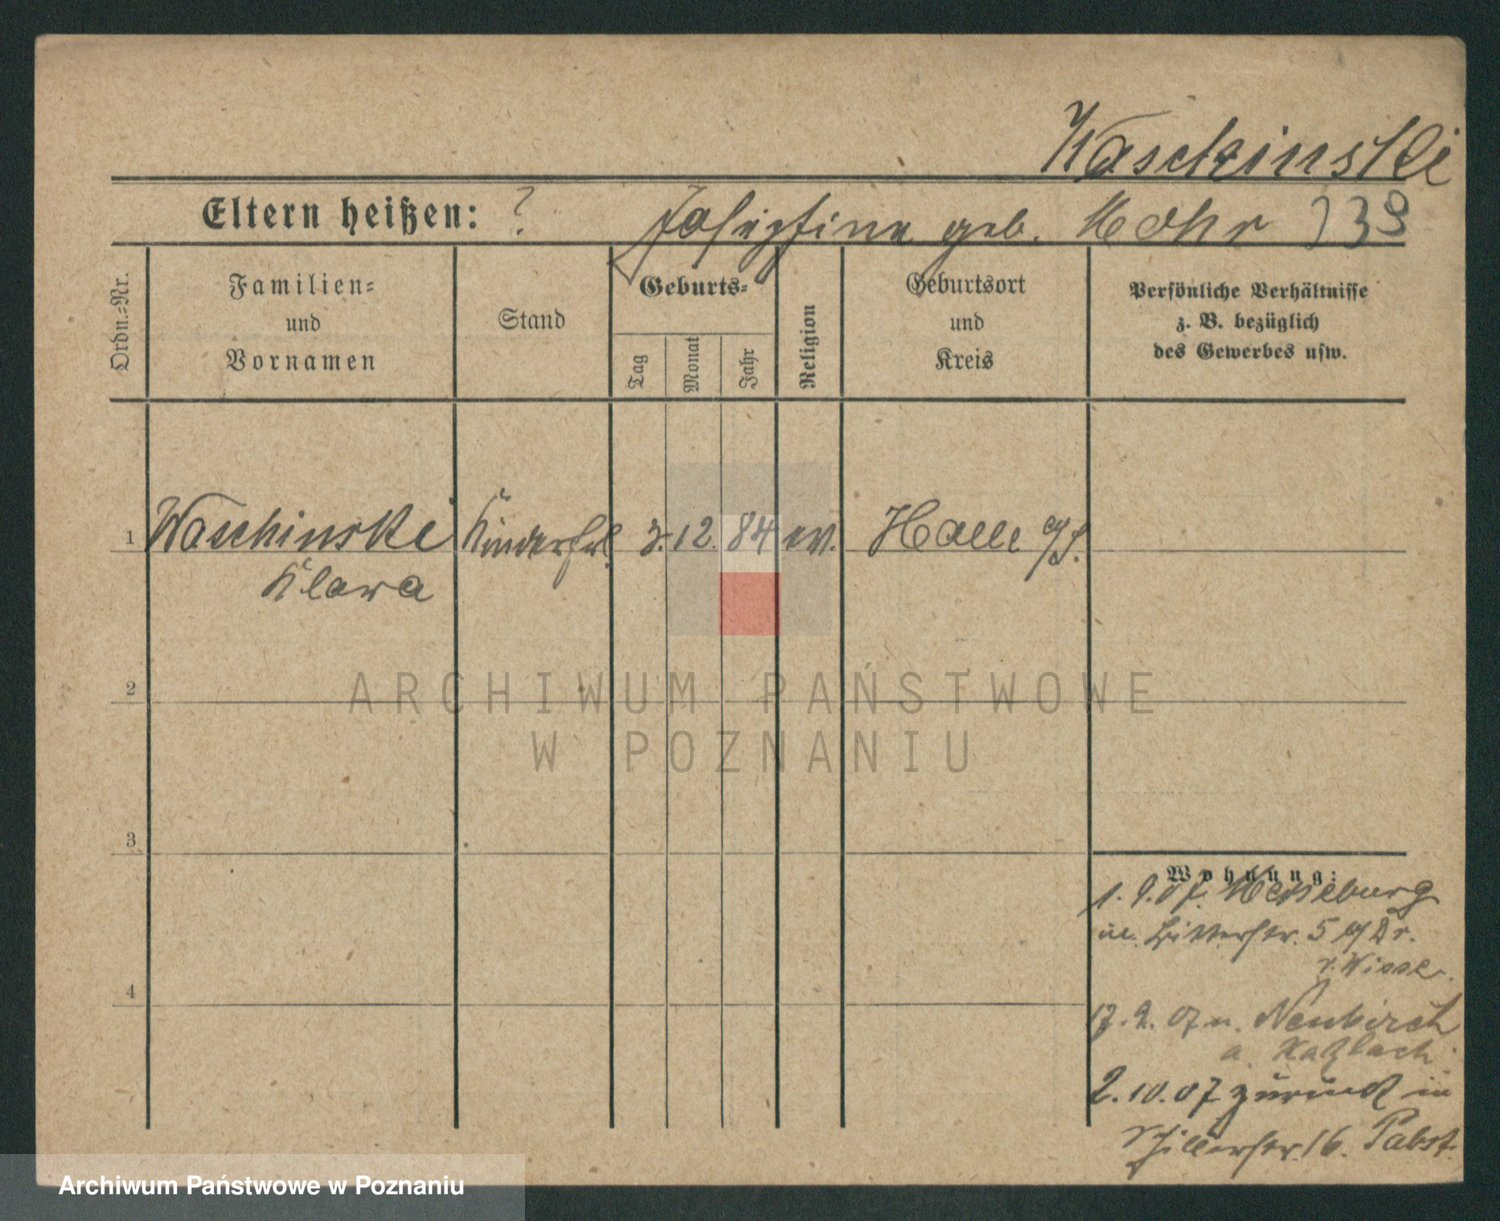 Waschinski
Eltern heißen: ? Josephine geb. Mohr 339
Ordn.-Nr.
Familien-
und
Vornamen
Stand
Geburts-
Tag
Monat
Jahr
Religion
Geburtsort
und
Kreis
Persönliche Verhältnisse
z. B. bezüglich
des Gewerbes usw.
1 Waschinski Kinderfrl. 3. 12. 84 ev. Halle a/S.
Klara
2
ARCHIWUM PAŃSTWOWE
W POZNANIU
3
Wohnung:
1. 9. 07. Merseburg
5
4
07 n. Neukirch
a.
2. 10. 07 zurück in
Schillerstr. 16. Pabst.
Archiwum Państwowe w Poznaniu